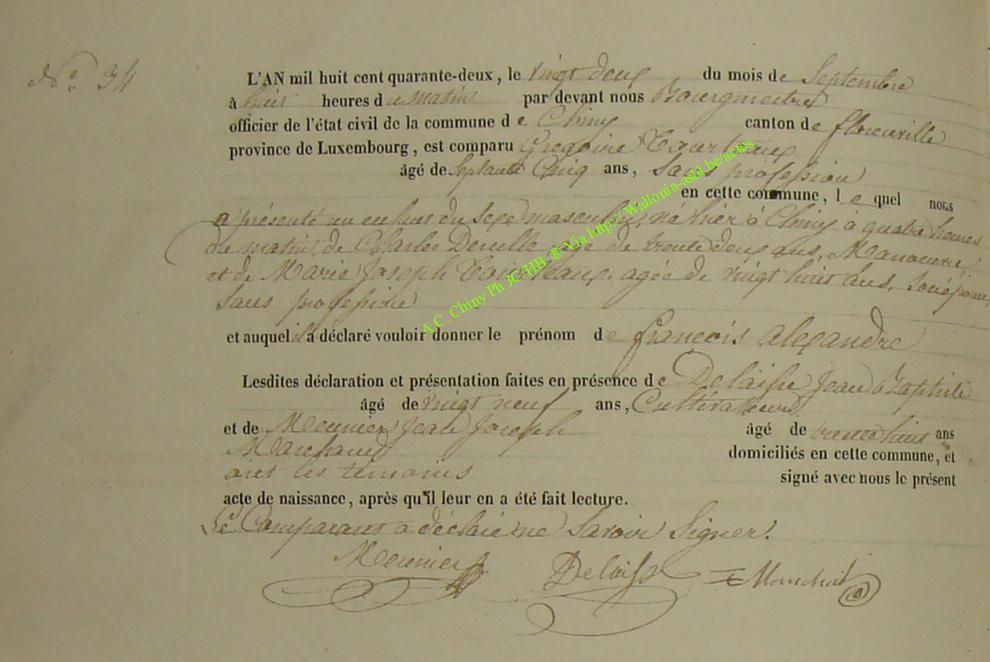 No. 34
L'AN mil huit cent quarante-deux, le vingt deux du mois de Septembre
à huit heures du matin par devant nous Bourgmestre
officier de l'état civil de la commune de Chiny canton de florenville
province de Luxembourg, est comparu Gregoire
âgé de Septante Cinq ans, Sans profession
en cette commune, le quel nous
a présenté un enfant du Sexe masculin, né hier à Chiny à quatre heures
du matin, de Charles Deville agé de trente deux ans, Manoeuvre,
et de Marie Joseph agée de vingt huit ans, Son epouse,
Sans profession
et auquel il a déclaré vouloir donner le prénom de françois alexandre
Lesdites déclaration et présentation faites en présence de Delaisse Jean Baptiste
âgé de vingt neuf ans, Cultivateur
et de Meunier Jean Joseph âgé de trente huit ans
Marchand domiciliés en cette commune, et
ont les temoins signé avec nous le présent
acte de naissance, après qu'il leur en a été fait lecture.
Le Comparant a déclaré ne Savoir Signer.
Meunier Delaisse
A.C. Chiny Ph JCHIB @ Via http://Wallonia-asbl.be/actes